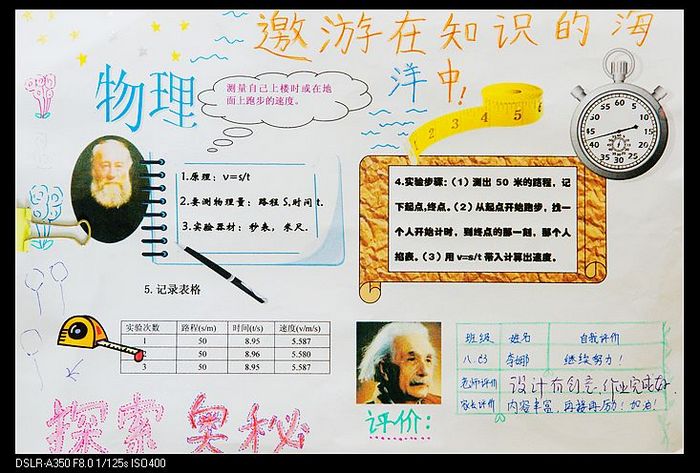 邀游在知识的海
洋中!
物理
测量自己上楼时或在地
面上跑步的速度。
1.原理: v=s/t
2.要测物理量: 路程 S,时间 t.
3.实验器材: 秒表, 米尺.
4.实验步骤: (1) 测出 50 米的路程, 记
下起点,终点。(2) 从起点开始跑步, 找一
个人开始计时, 到终点的那一刻, 那个人
掐表。(3) 用 v=s/t 带入计算出速度。
5. 记录表格
实验次数 路程(s/m) 时间(t/s) 速度(v/m/s)
1 50 8.95 5.587
2 50 8.96 5.580
3 50 8.95 5.587
班级 姓名 自我评价
八.63 李娜 继续努力!
老师评价 设计有创意,作业完成好
家长评价 内容丰富,再接再厉!加油!
评价:
探索奥秘
60 5 10 15 20 25 30 35 40 45 50 55
1 2 3 4 5
DSLR-A350 F8.0 1/125s ISO400